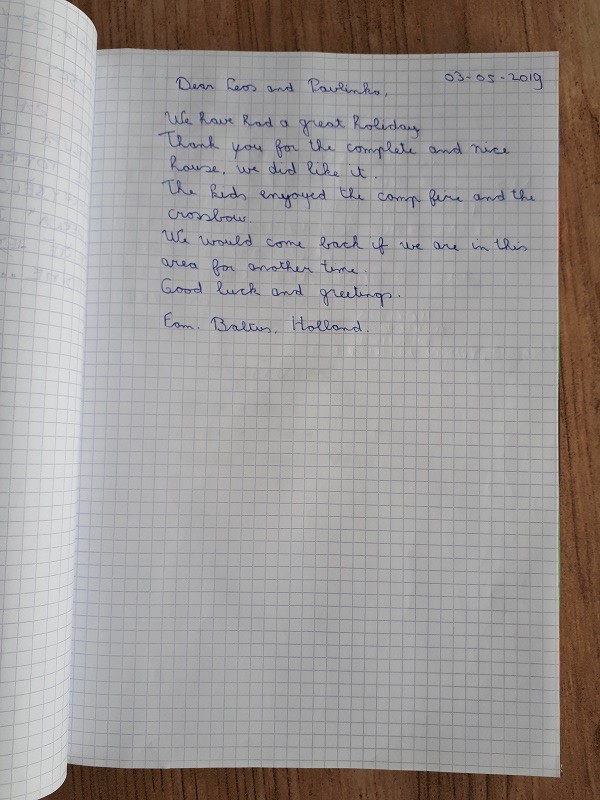 03-05-2019
Dear Ceos and Pavlinka,
We have had a great holiday
Thank you for the complete and nice
house, we did like it.
The kids enyoyed the camp fire and the
crossbow.
We would come back if we are in this
area for another time.
Good luck and greetings.
Fam. Baltus, Holland.